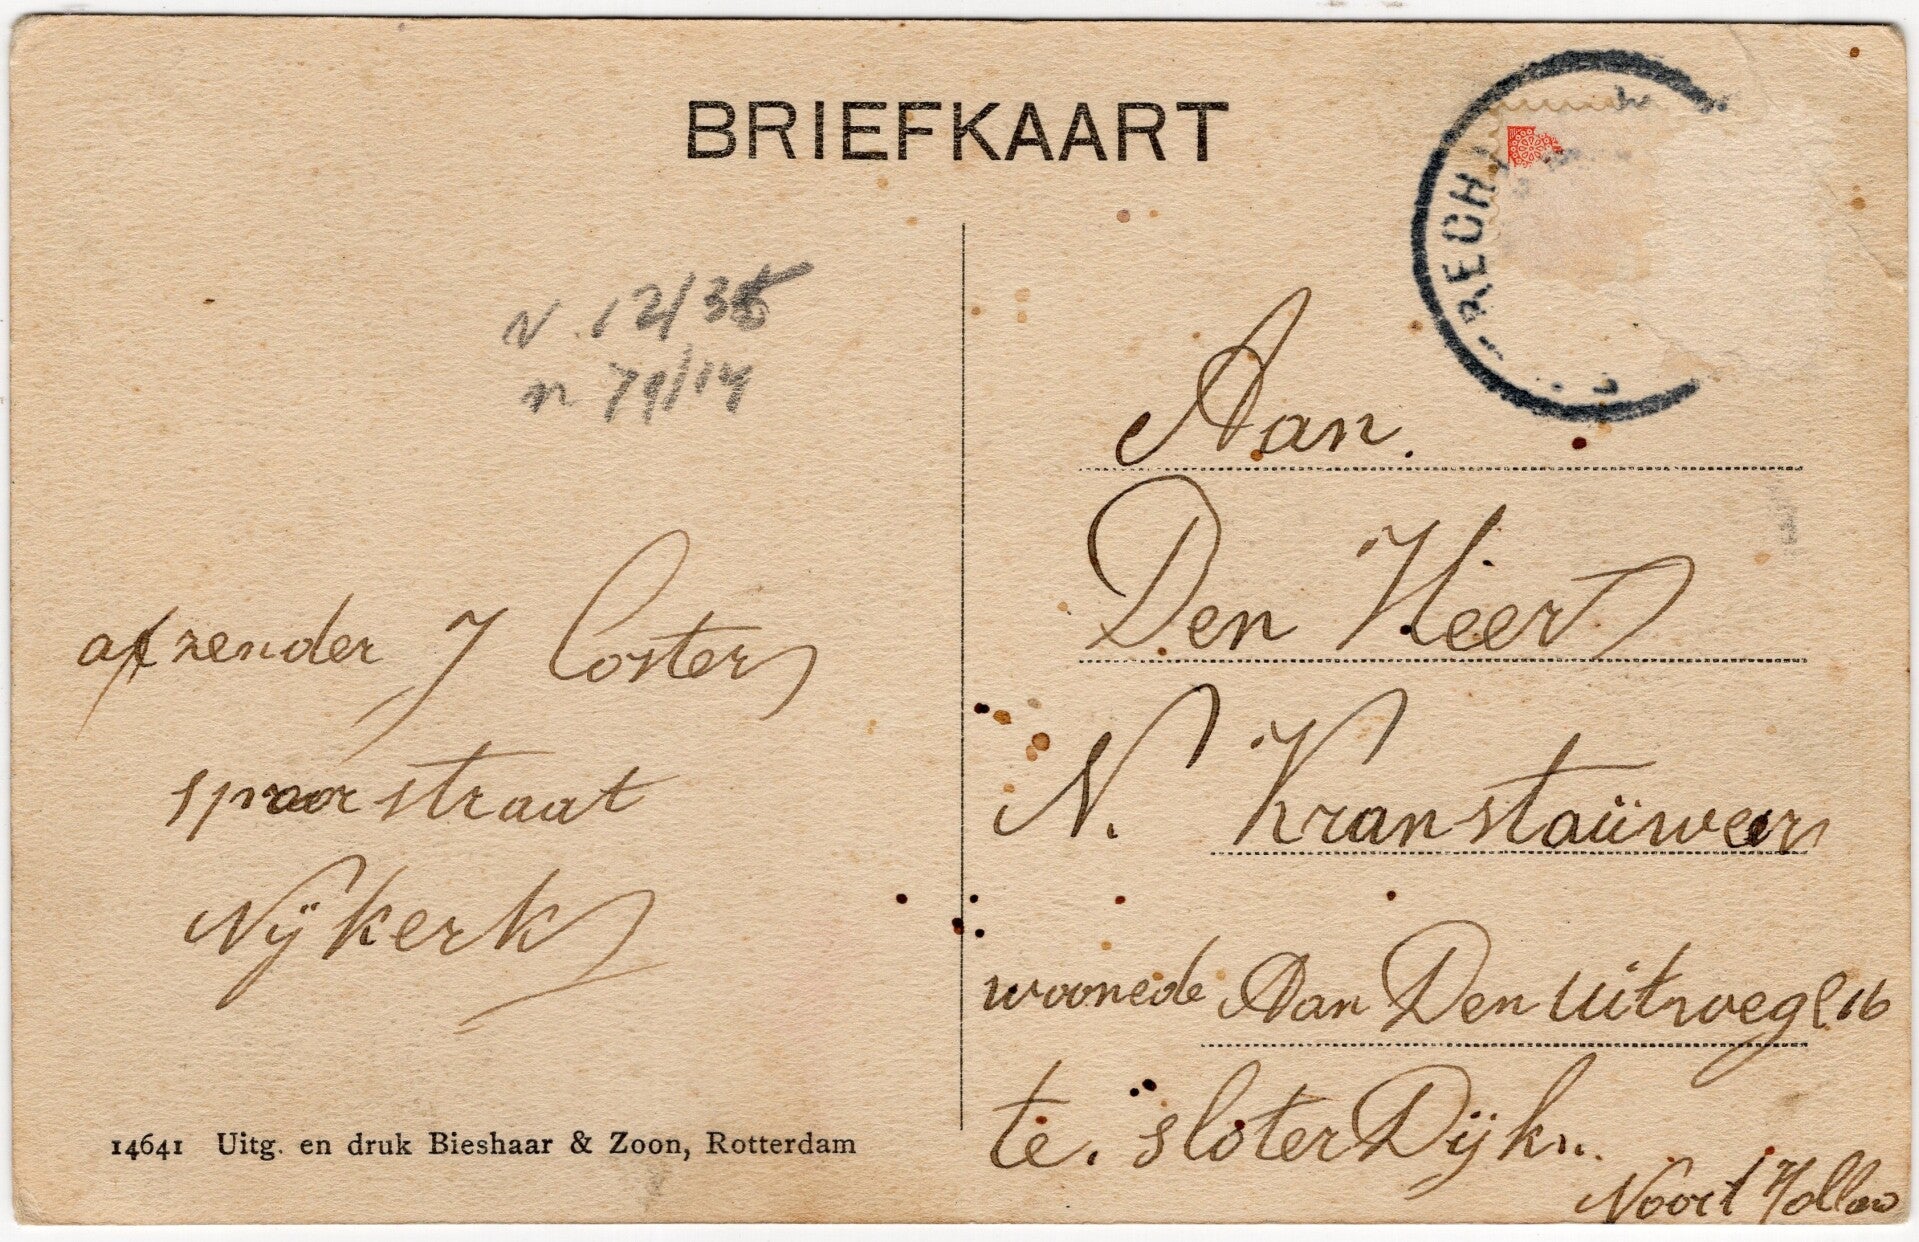 BRIEFKAART
RECH
N. 12/35
n 79/14
afzender J Coster
spoorstraat
Nÿkerk
14641 Uitg. en druk Bieshaar & Zoon, Rotterdam
Aan.
Den Heer
N. Kranstaüwer
woonede Aan Den Uitweg 16
te. sloterDÿk.
Noort Hollan